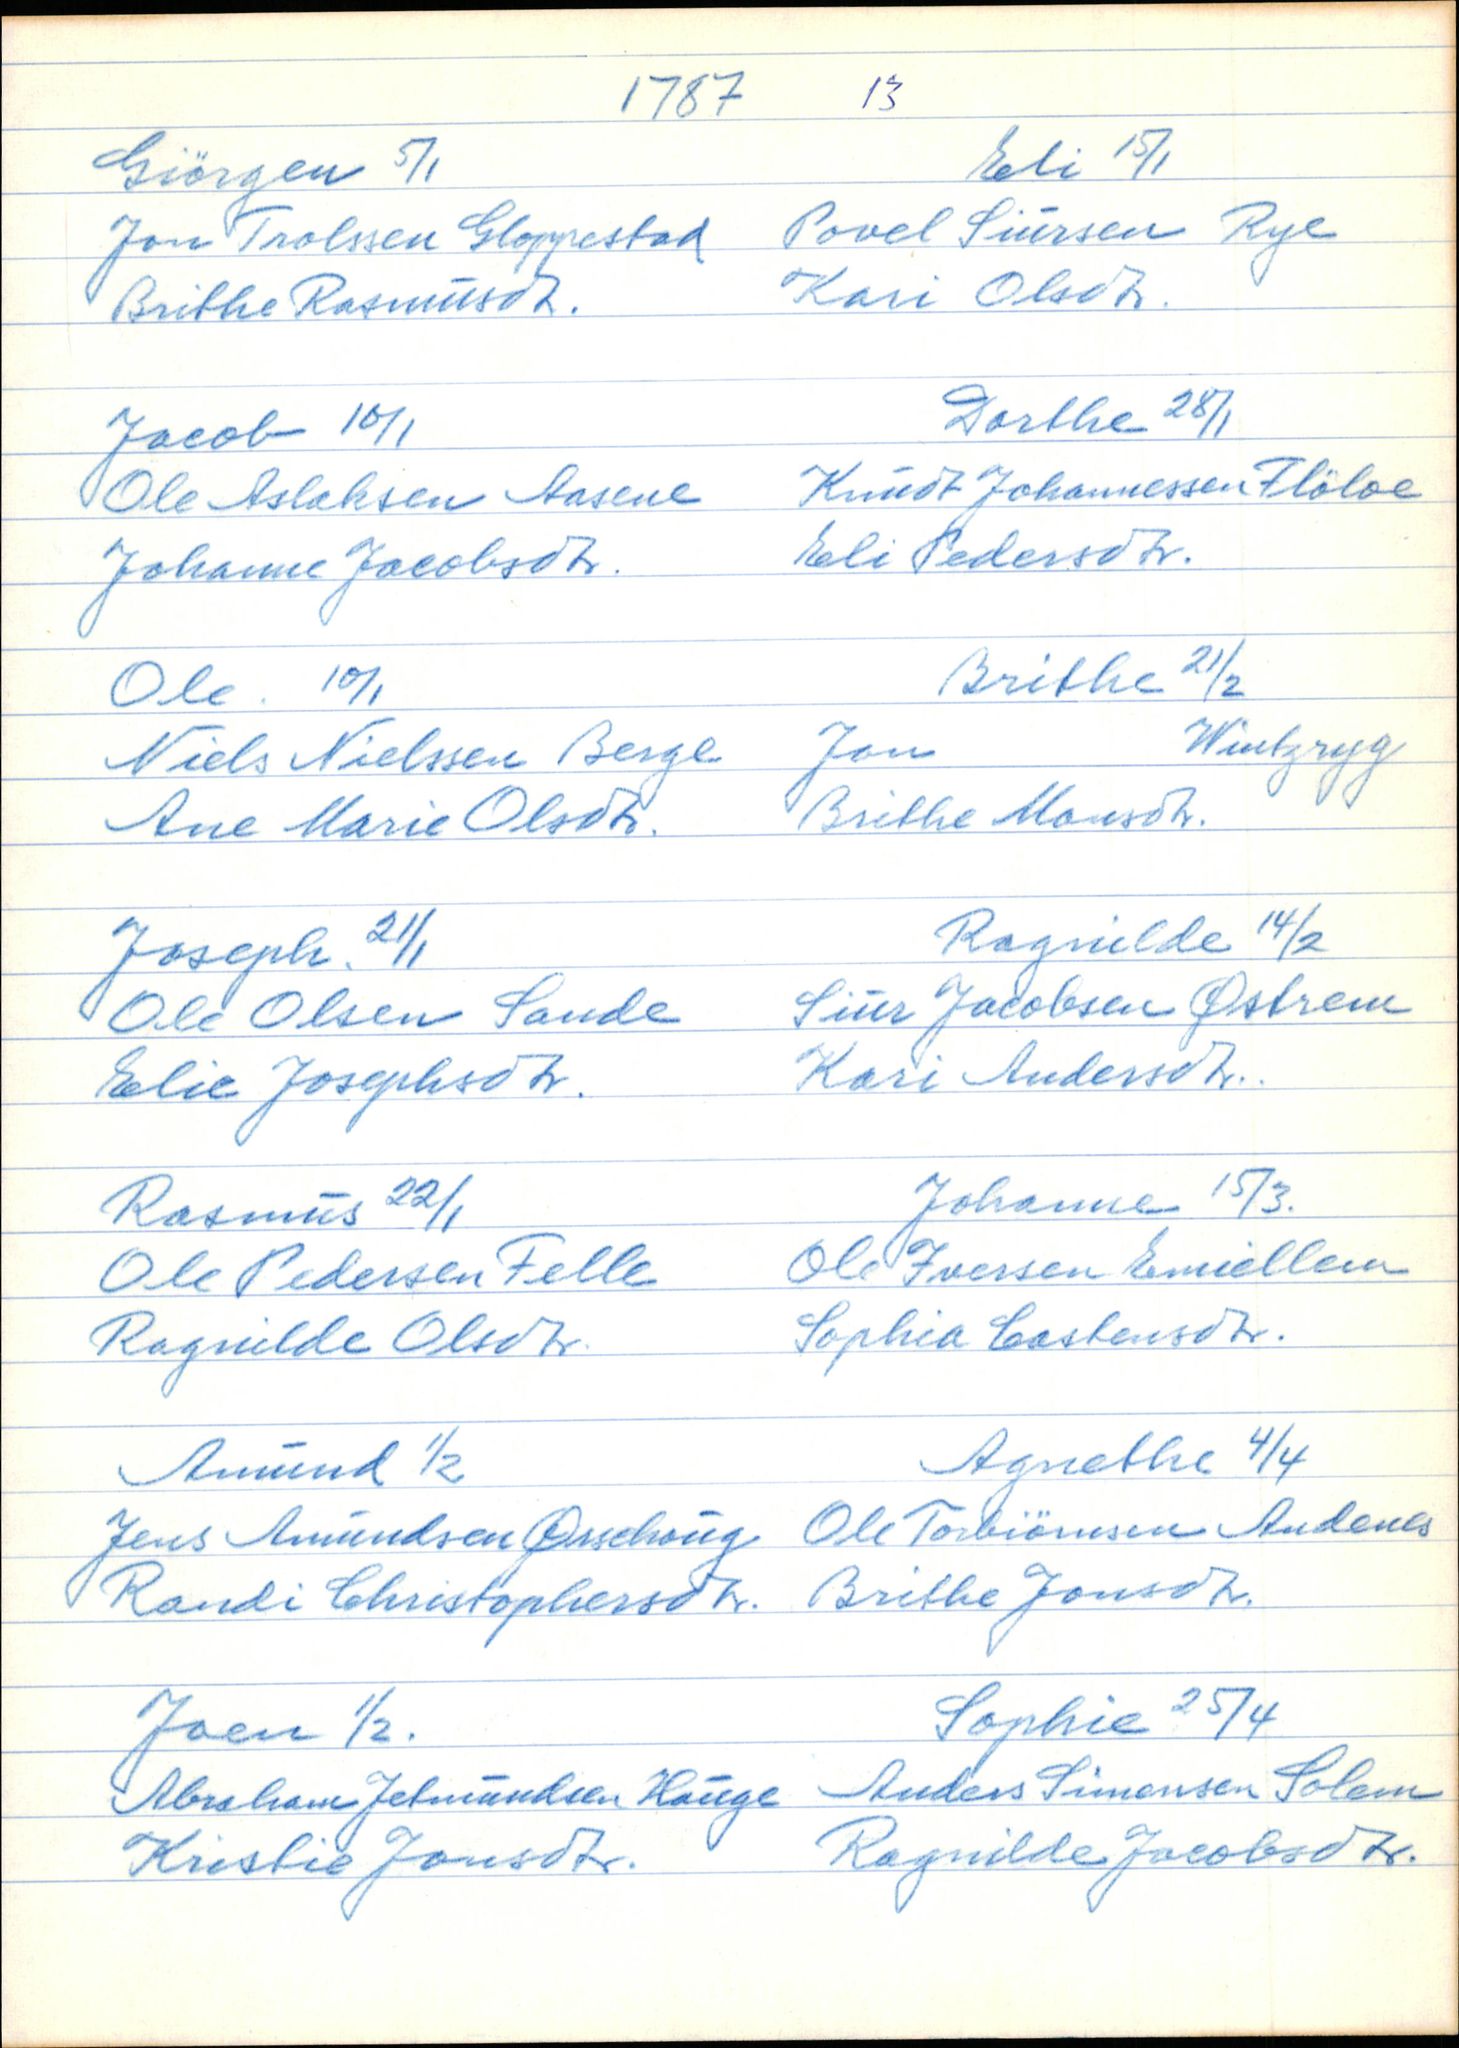 1787 13
Giörgen 5/1
Jon Trolssen Gloppestad
Brithe Rasmusdtr.
Jacob 10/1
Ole Aslaksen Aasene
Johanne Jacobsdtr.
Ole. 10/1
Niels Nielssen Berge
Ane Marie Olsdtr.
Joseph. 21/1
Ole Olsen Sande
Elie Josephsdtr.
Rasmus 22/1
Ole Pedersen Felle
Ragnilde Olsdtr.
Amund 1/2
Jens Amundsen Ørschoug
Randi Christophersdtr.
Joen 1/2.
Abraham Jetmundsen Hauge
Kristie Jonsdtr.
Eli 15/1
Povel Siursen Rye
Kari Olsdtr.
Dorthe 28/1
Knudt Johannessen Flöloe
Eli Pedersdtr.
Brithe 21/2
Jon Wintzryg
Brithe Monsdtr.
Ragnilde 14/2
Siur Jacobsen Østrem
Kari Andersdtr..
Johanne 15/3.
Ole Iversen Emiellem
Sophia Castensdtr.
Agnethe 4/4
Ole Torbiörnsen Andenes
Brithe Jonsdtr.
Sophie 25/4
Anders Simensen Solem
Ragnilde Jacobsdtr.